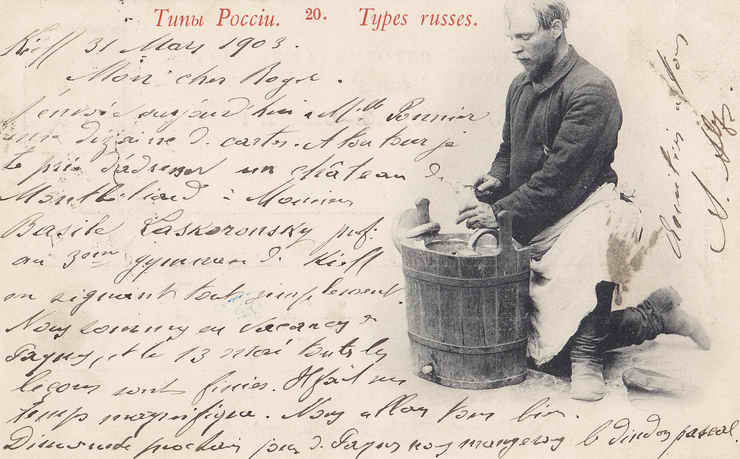 Типы Россіи. 20. Types russes.
Kieff 31 Mars 1903.
Mon cher Roger.
J'envoie aujourd'hui à Melle Ponnier
une dizaine de cartes. A ton tour je
te prie d'adresser un château de
Montbéliard à Monsieur
Basile Laskoronsky prof.
au 3ème gymnase de Kieff
en signant tout simplement.
Nous sommes en vacances de
Pâques, et le 13 mai toutes les
leçons sont finies. Il fait un
temps magnifique. Nous allons tous bien.
Dimanche prochain jour de Pâques nous mangerons le dindon pascal.
Amitiés à tous